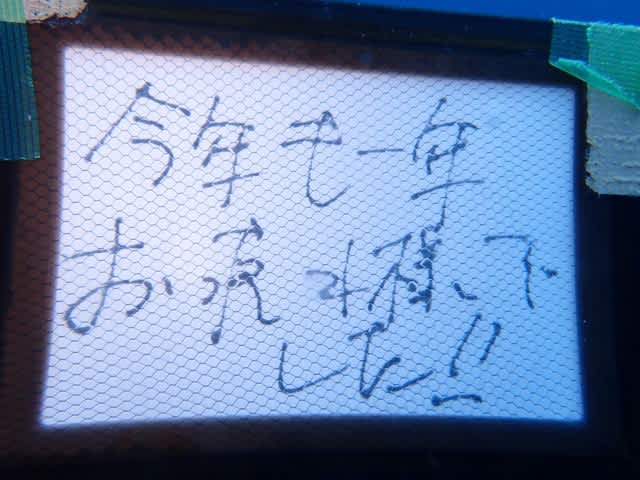 今年も一年
お疲れ様で
した!!